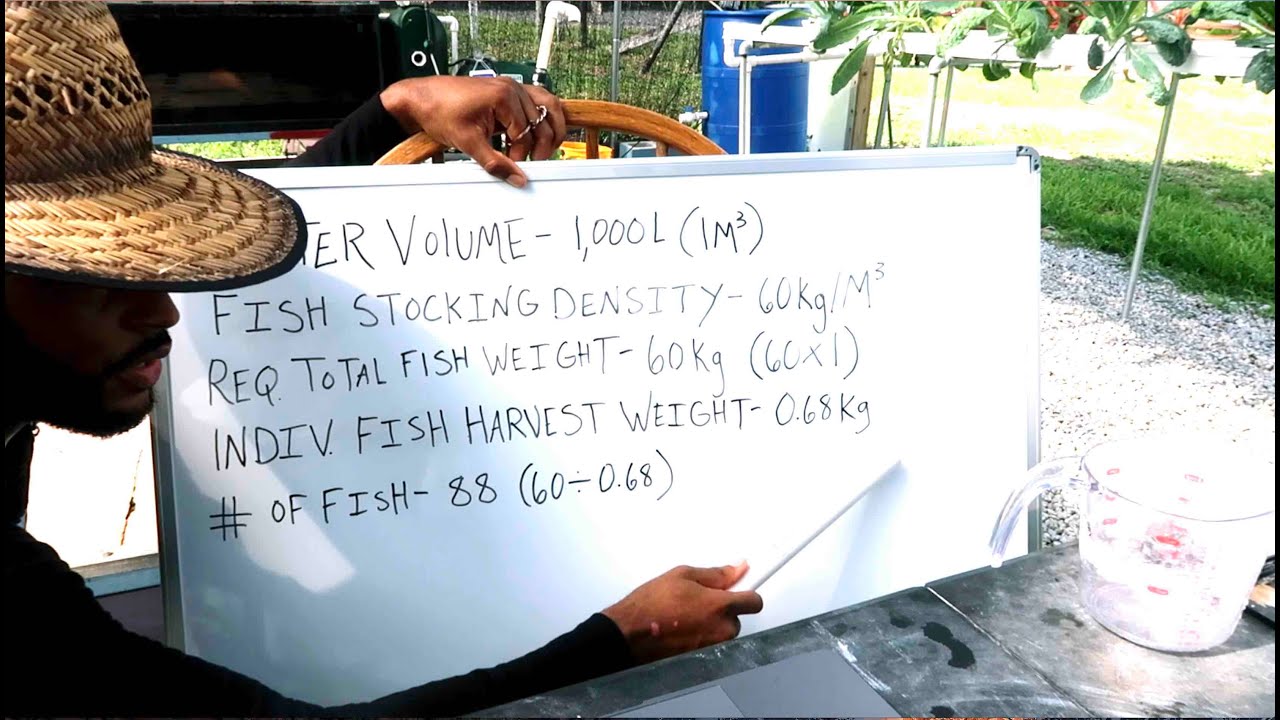 TER VOLUME - 1,000L (1M³)
FISH STOCKING DENSITY - 60Kg/M³
REQ. TOTAL FISH WEIGHT - 60Kg (60x1)
INDIV. FISH HARVEST WEIGHT - 0.68Kg
# OF FISH - 88 (60÷0.68)